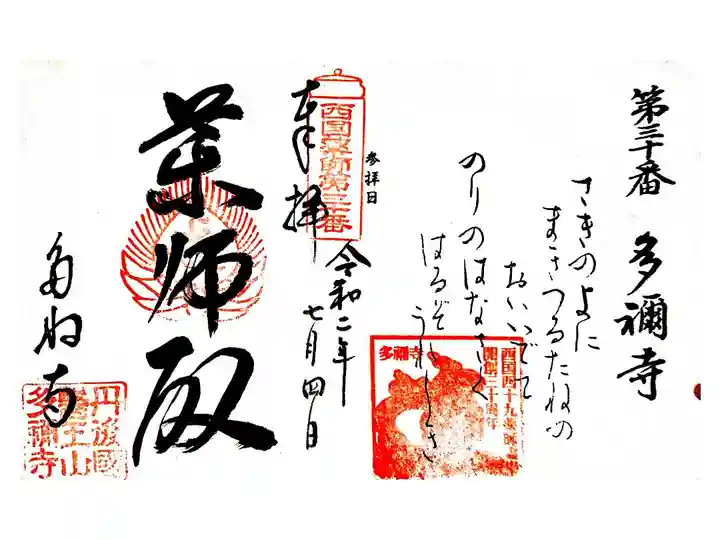 第三十番 多禰寺
さきのよに
まきつるたねの
おいいでて
のりのはなさく
はるぞうれしき
参拝日
令和二年
七月四日
西国薬師第三十番
奉拝
薬師殿
多祢寺
多禰寺
西国四十九薬師霊場
開創三十周年
丹後國
医王山
多禰寺